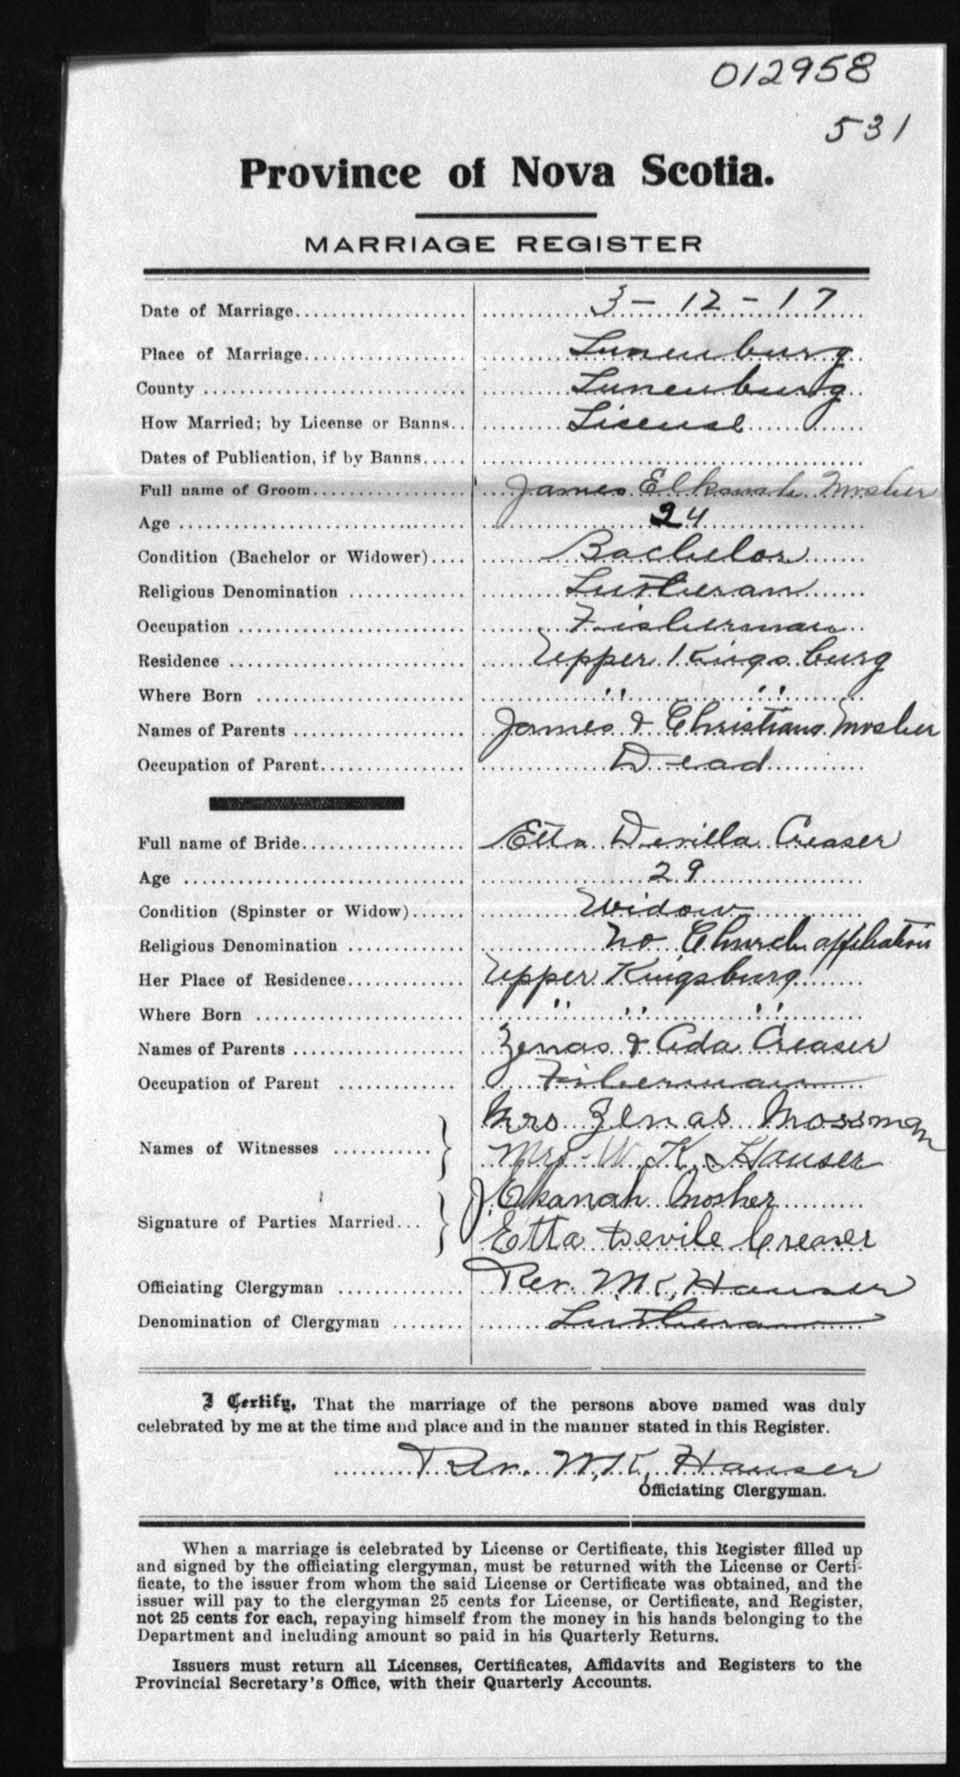 012958
531
Province of Nova Scotia.
MARRIAGE REGISTER
Date of Marriage 3 - 12 - 17
Place of Marriage Lunenburg
County Lunenburg
How Married; by License or Banns License
Dates of Publication, if by Banns
Full name of Groom James Elkanah Mosher
Age 24
Condition (Bachelor or Widower) Bachelor
Religious Denomination Lutheran
Occupation Fisherman
Residence Upper Kingsburg
Where Born " "
Names of Parents James & Christiana Mosher
Occupation of Parent Dead
Full name of Bride Etta Devilla Creaser
Age 29
Condition (Spinster or Widow) Widow
Religious Denomination No Church affiliation
Her Place of Residence Upper Kingsburg
Where Born " " "
Names of Parents Zenas & Ada Creaser
Occupation of Parent Fisherman
Names of Witnesses } Mrs Zenas Mossman
Mrs. W. K. Hauser
Signature of Parties Married } J. Elkanah Mosher
Etta Devile Creaser
Officiating Clergyman Rev. W. K. Hauser
Denomination of Clergyman Lutheran
I Certify, That the marriage of the persons above named was duly
celebrated by me at the time and place and in the manner stated in this Register.
Rev. W. K. Hauser
Officiating Clergyman.
When a marriage is celebrated by License or Certificate, this Register filled up
and signed by the officiating clergyman, must be returned with the License or Certi-
ficate, to the issuer from whom the said License or Certificate was obtained, and the
issuer will pay to the clergyman 25 cents for License, or Certificate, and Register,
not 25 cents for each, repaying himself from the money in his hands belonging to the
Department and including amount so paid in his Quarterly Returns.
Issuers must return all Licenses, Certificates, Affidavits and Registers to the
Provincial Secretary's Office, with their Quarterly Accounts.